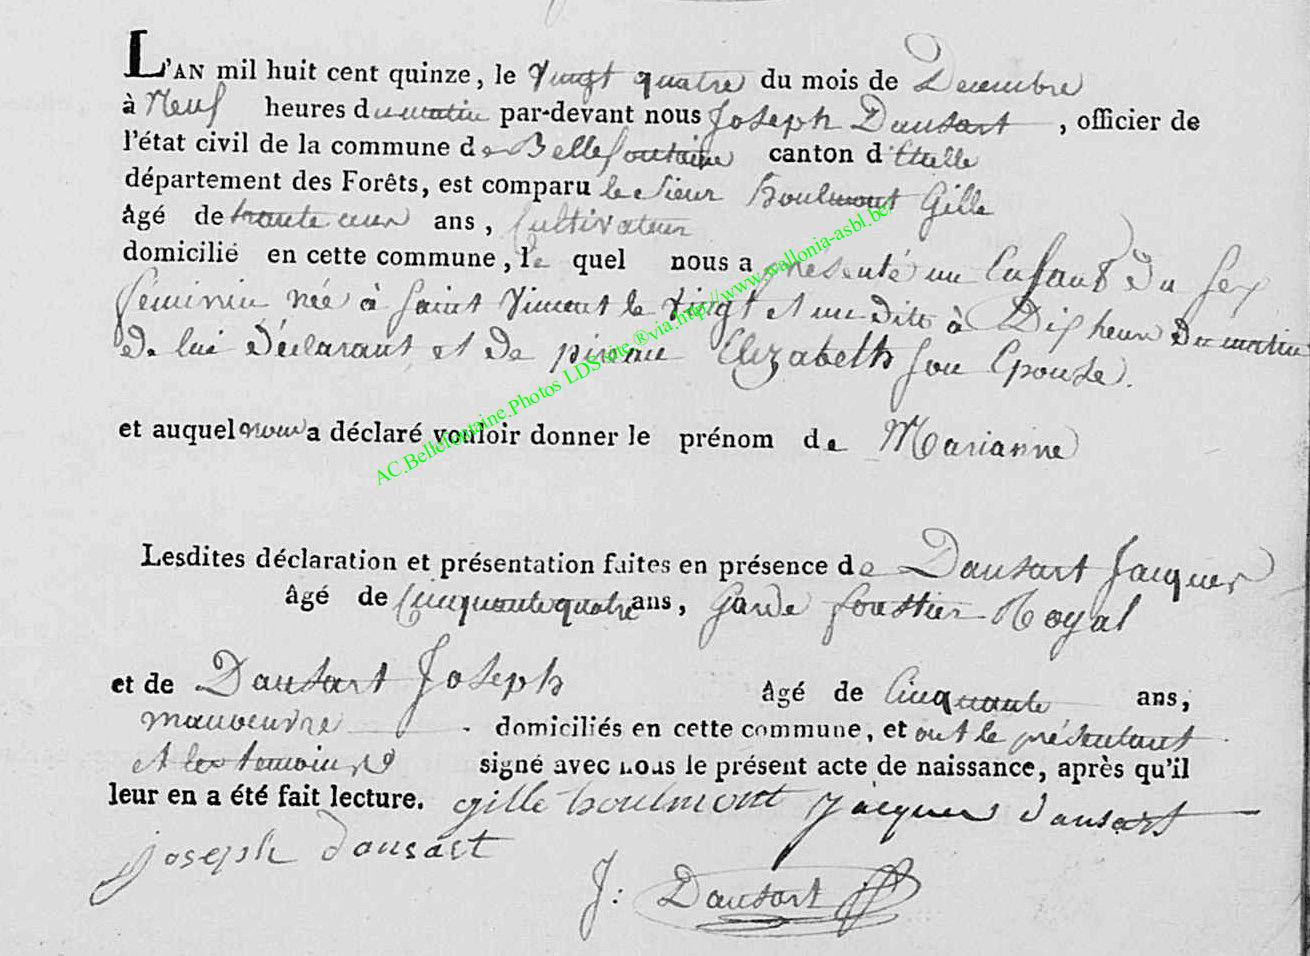 L'AN mil huit cent quinze, le vingt quatre du mois de Decembre
à Neuf heures du matin par-devant nous Joseph Dansart, officier de
l'état civil de la commune de Bellefontaine canton d'Etalle
département des Forêts, est comparu le Sieur Houlmont Gille
âgé de trante ans, Cultivateur
domicilié en cette commune, le quel nous a présenté un Enfant du sex
féminin née à saint Vincent le vingt et un dito à Dix heur du matin
de lui déclarant et de Elizabeth son Epouse.
et auquel nous a déclaré vouloir donner le prénom de Marianne
Lesdites déclaration et présentation faites en présence de Dansart Jacques
âgé de Cinquante quatre ans, garde Royal
et de Dansart Joseph âgé de Cinquante ans,
domiciliés en cette commune, et ont le présentant
et les temoins signé avec nous le présent acte de naissance, après qu'il
leur en a été fait lecture. gille houlmont jacques dansart
joseph dansart
J: Dansart
AC.Bellefontaine.Photos LDS site ®via.http://www.wallonia-asbl.be/